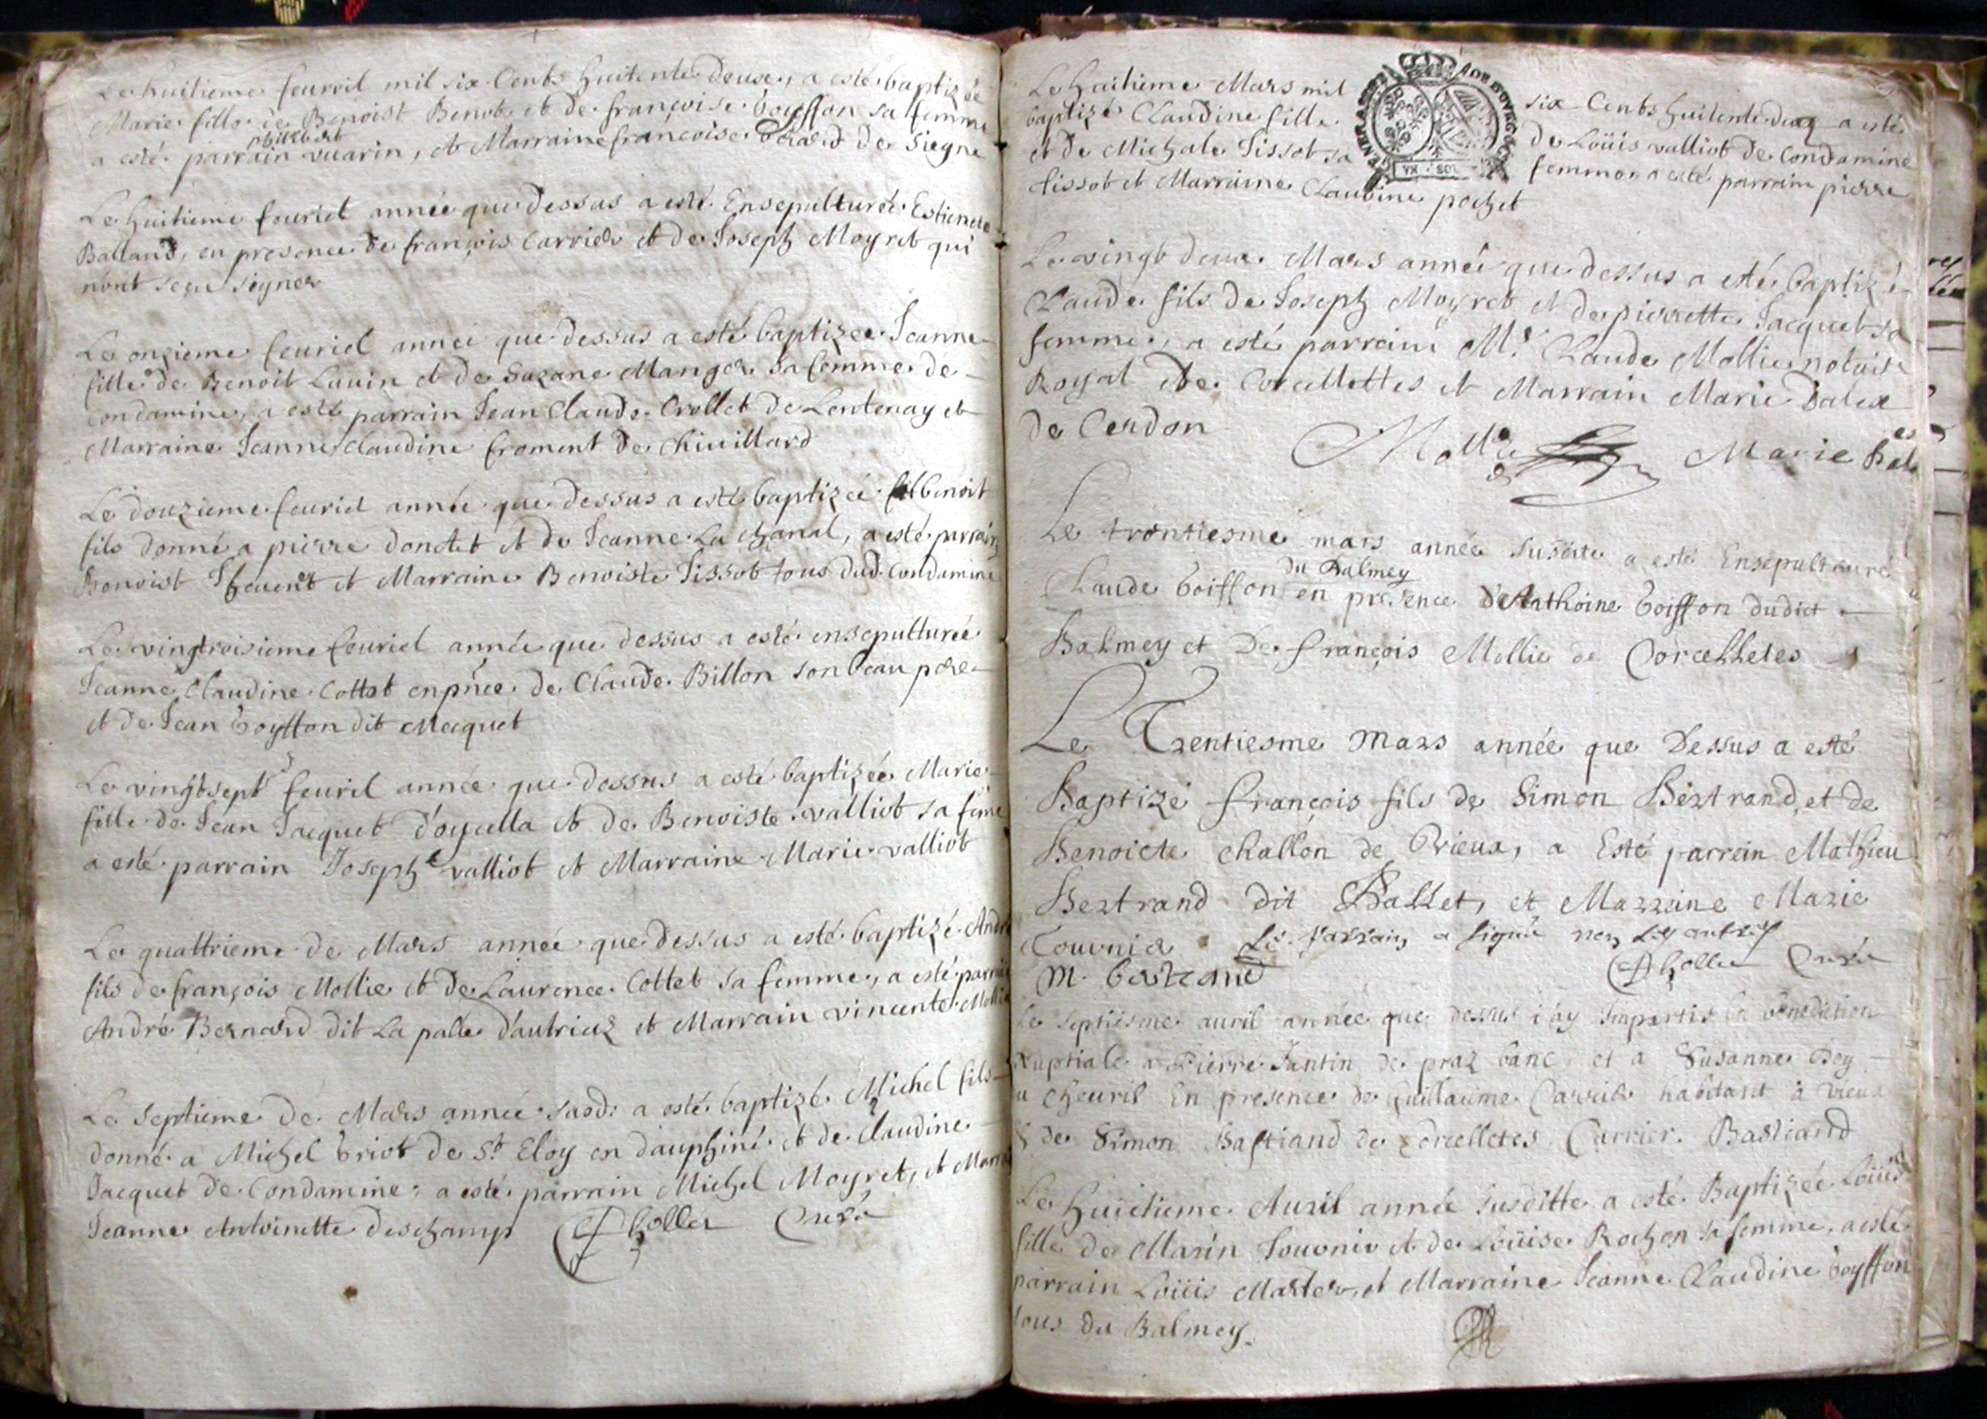 Le huitieme feuvril mil six Cents huitente deux, a esté baptizée
Marie fille de Benoist Benot et de françoise boysson sa femme
philibert
a esté parrain vuarin, et Marraine francoise de Siegne
Le huitieme feuriel année que dessus a esté Ensepulturée Estienette
Balland, en presence de françois Carrier et de Joseph Moyret qui
n'ont sceu signer
Le onzieme feuriel année que dessus a esté baptizée Jeanne
fille de Benoit Luuin et de Suzane Manger sa femme de
Condamine, a esté parrain Jean Claude Crollet de Lentenay et
Marraine Jeanne Claudine froment de Chiuillard
Le douzieme feuriel année que dessus a esté baptizée benoit
fils donné a pierre donctet et de Jeanne La chanal, a esté parrain
Benoist Theuent et Marraine Benoiste Tissot tous dud. Condamine
Le vingtroisieme feuriel année que dessus a esté ensepulturée
Jeanne Claudine Cottet en pnce de Claude Billon son beau pere
et de Jean boysson dit Mecquet
Le vingtsept feuril année que dessus a esté baptizée Marie
fille de Jean Jacquet d'oysella et de Benoiste valliot sa fème
a esté parrain Joseph valliot et Marraine Marie valliot
Le quattrieme de Mars année que dessus a esté baptizé André
fils de françois Mollie et de Laurence Cottet sa femme, a esté parrain
André Bernard dit La palle d'autrieuz et Marrain vincente Mollie
Le septieme de Mars année susd. a esté baptizé Michel fils
donné a Michel briot de St Eloy en dauphiné et de Claudine
Jacquet de Condamine, a esté parrain Michel Moyret, et Marrai
Jeanne Antoinette deschamp Chollet Curé
Le huitieme Mars mil six Cents huitente deux a esté
baptizé Claudine fille de Loüis valliot de Condamine
et de Michale Tissot sa femme, a esté parrain pierre
tissot et Marraine Claudine pochet
Le vingt deux Mars année que dessus a esté baptizé
Claude fils de Joseph Moyret et de pierrette Jacquet sa
femme, a esté parrain Mr Claude Mollie notaire
Royal de Corcellettes et Marrain Marie Balex
de Cerdon
Mollie Marie Bal
Le trentiesme mars année susdite a esté Ensepulturé
du Balmey
Claude boisson en presence d'Anthoine boisson dudict
Balmey et De françois Mollie de Corcelletes
Le Trentiesme Mars année que Dessus a esté
Baptizé françois fils de Simon Bertrand, et de
Benoicte challon de Vrieux, a Esté parrein Mathieu
Bertrand dit Ballet, et Marreine Marie
Touvnier Le parrain a signé non Les autres
M. bertrand Chollet Curé
Le septiesme auril année que dessus i'ay Impartis la benediction
Nuptiale a Pierre Jantin de praz banc et a Susanne Bey
u cheuril En presence de Guillaume Carrier habitant à vieux
& de Simon Bastiand de Corcelletes Carrier Bastiand
Le Huictieme Auril année susditte a esté Baptizée Loüise
fille de Marin Touvnier et de Loüise Rochon sa femme, a esté
parrain Loüis Marter, et Marraine Jeanne Claudine boysson
tous du Balmey.